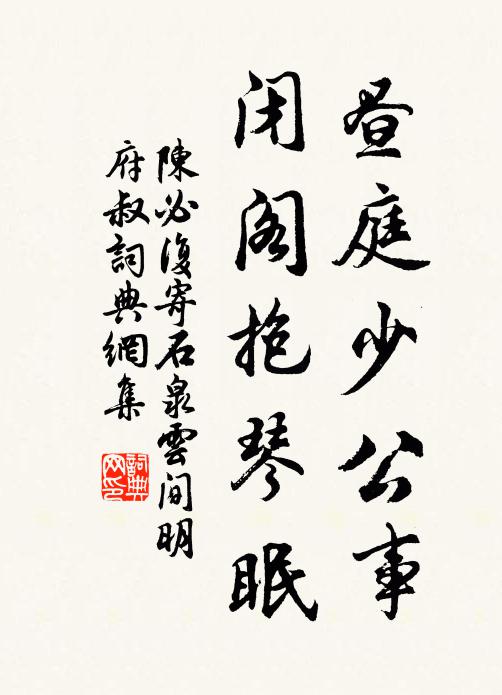 昼庭少公事
闭阁抱琴眠
陳必復寄石泉雲間明
府叔詞典網集
詞典
网印